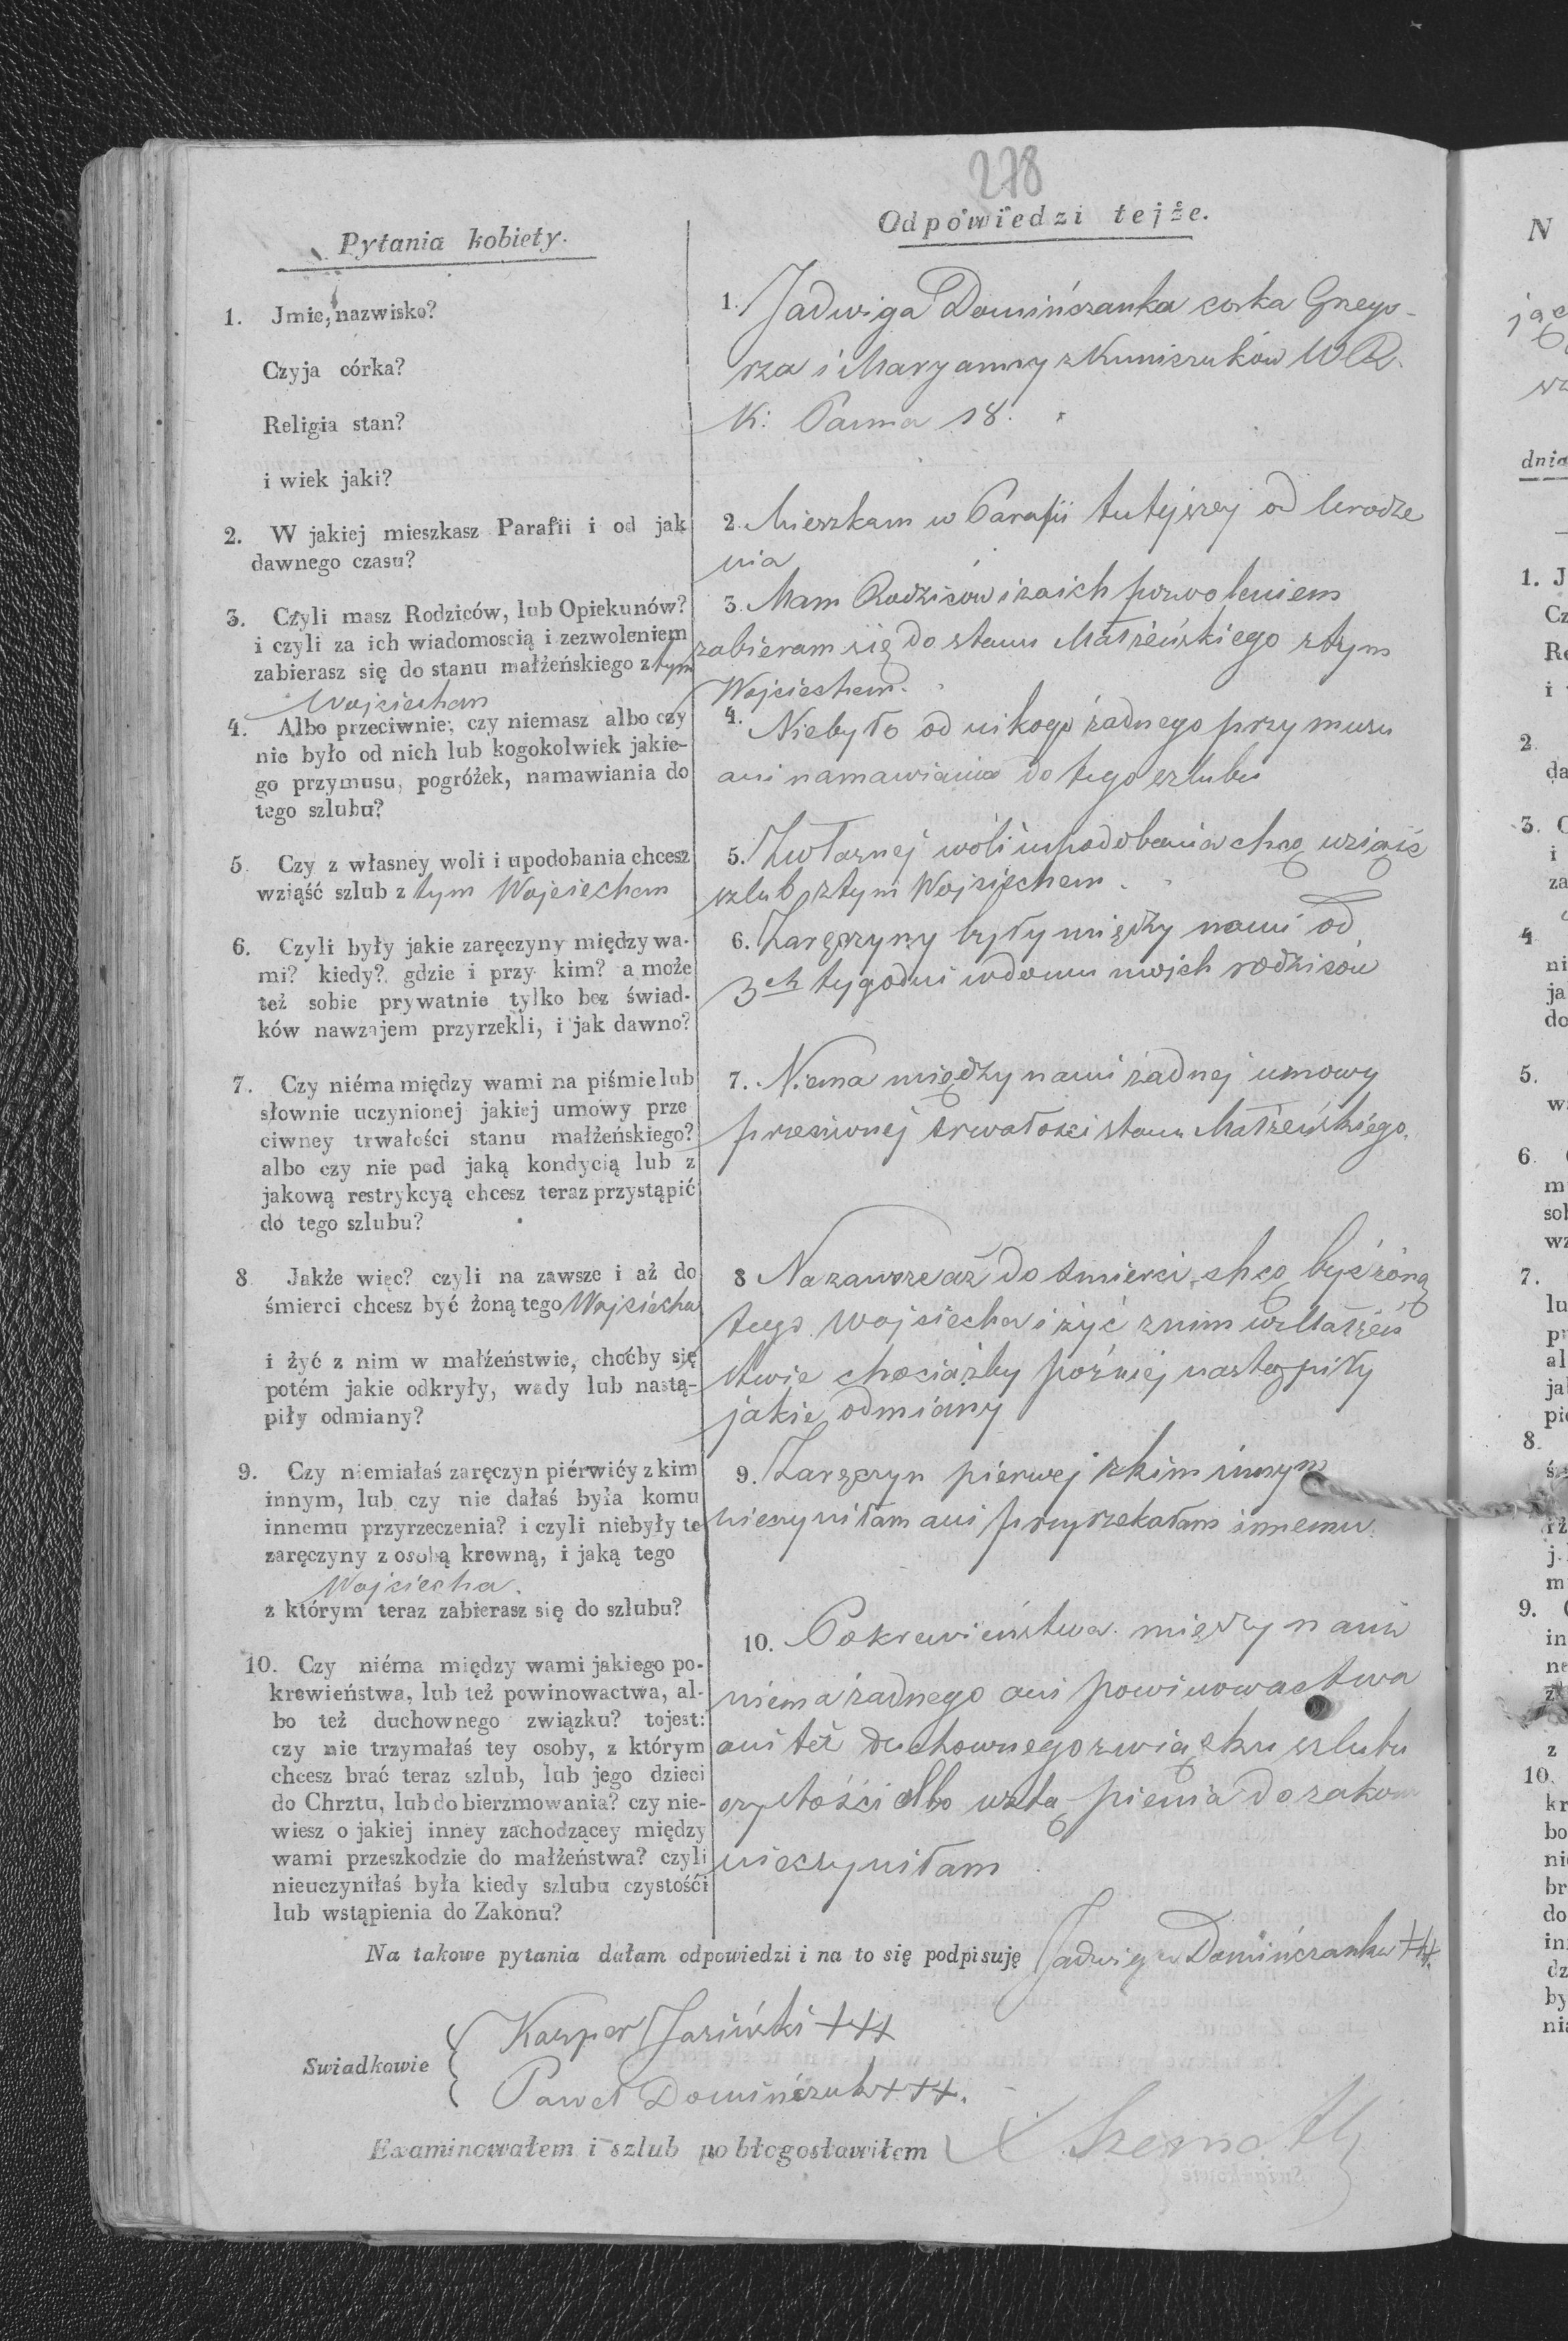 278
Pytania kobiety.
1. Jmie, nazwisko?
Czyja córka?
Religia stan?
i wiek jaki?
2. W jakiej mieszkasz Parafii i od jak
dawnego czasu?
3. Czyli masz Rodziców, lub Opiekunów?
i czyli za ich wiadomością i zezwoleniem
zabierasz się do stanu małżeńskiego z tym
Wojciechem
4. Albo przeciwnie; czy niemasz albo czy
nie było od nich lub kogokolwiek jakie-
go przymusu, pogróżek, namawiania do
tego szlubu?
5. Czy z własney woli i upodobania chcesz
wziąść szlub z tym Wojciechem
6. Czyli były jakie zaręczyny między wa-
mi? kiedy? gdzie i przy kim? a może
też sobie prywatnie tylko bez świad-
ków nawzajem przyrzekli, i jak dawno?
7. Czy niéma między wami na piśmie lub
słownie uczynionej jakiej umowy prze
ciwney trwałości stanu małżeńskiego?
albo czy nie pod jaką kondycią lub z
jakową restrykcyą chcesz teraz przystąpić
do tego szlubu?
8 Jakże więc? czyli na zawsze i aż do
śmierci chcesz być żoną tego Wojciecha
i żyć z nim w małżeństwie, choćby się
potém jakie odkryły, wady lub nastą-
piły odmiany?
9. Czy niemiałaś zaręczyn piérwiéy z kim
innym, lub czy nie dałaś była komu
innemu przyrzeczenia? i czyli niebyły te
zaręczyny z osobą krewną, i jaką tego
Wojciecha.
z którym teraz zabierasz się do szlubu?
10. Czy niéma między wami jakiego po-
krewieństwa, lub też powinowactwa, al-
bo też duchownego związku? tojest:
czy nie trzymałaś tey osoby, z którym
chcesz brać teraz szlub, lub jego dzieci
do Chrztu, lub do bierzmowania? czy nie-
wiesz o jakiej inney zachodzącey między
wami przeszkodzie do małżeństwa? czyli
nieuczyniłaś była kiedy szlubu czystośći
lub wstąpienia do Zakonu?
Odpowiedzi tejże.
1. Jadwiga Domińczanka corka Grzego-
rza i Maryanny z Kuniczuków W R.
K: Panna 18.
2. Mieszkam w Parafii tutejszej od Urodze
nia
3. Mam Rodziców i za ich pozwoleniem
zabieram się do stanu Małżeńskiego z tym
Wojciechem.
4. Niebyło od nikogo żadnego przymusu
ani namawiania do tego szlubu
5. Z własnej woli i upodobania chcę wziąść
szlub z tym Wojciechem.
6. Zaręczyny były między nami od
3ch tygodni w domu moich rodziców
7. Niema między nami żadnej umowy
przeciwnej trwałości stanu Małżeńskiego.
8 Na zawsze aż do śmierci chcę być żoną
tego Wojciecha i żyć z nim w Małżeń
stwie chociażby poźniej nastąpiły
jakie odmiany
9. Zaręczyn pierwej z kim innym
nieczyniłam ani przyrzekałam innemu.
10. Pokrewieństwa między nami
niema żadnego ani powinowactwa
ani też duchownego związku szlubu
czystości albo wstąpienia do zakonu
nieczyniłam
Na takowe pytania dałam odpowiedzi i na to się podpisuję Jadwiga Domińczanka +++.
Swiadkowie
Kasper Jasiński +++
Paweł Domińczuk +++.
Examinowałem i szlub pobłogosławiłem X
N
dnia